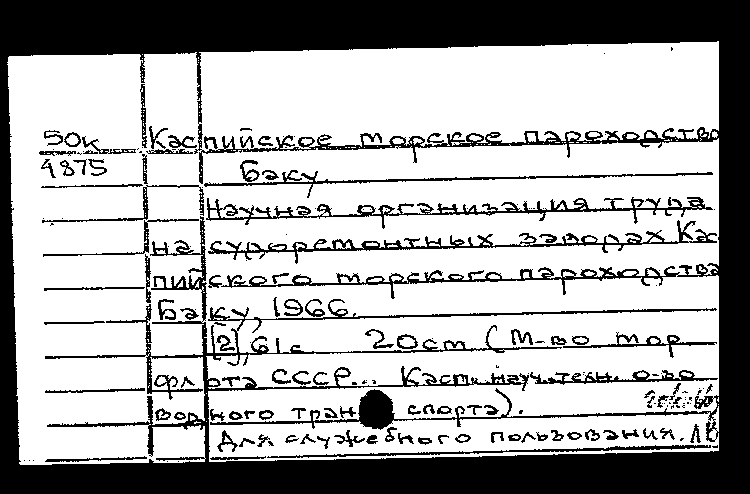 50к Каспийское морское пароходство
4875 Баку.
Научная организация труда
на судоремонтных заводах Кас
пийского морского пароходства
Баку, 1966.
[2], 61с 20см (М-во мор
флота СССР... Касп. науч.-техн. о-во
водного транспорта).
Для служебного пользования. ЛВ